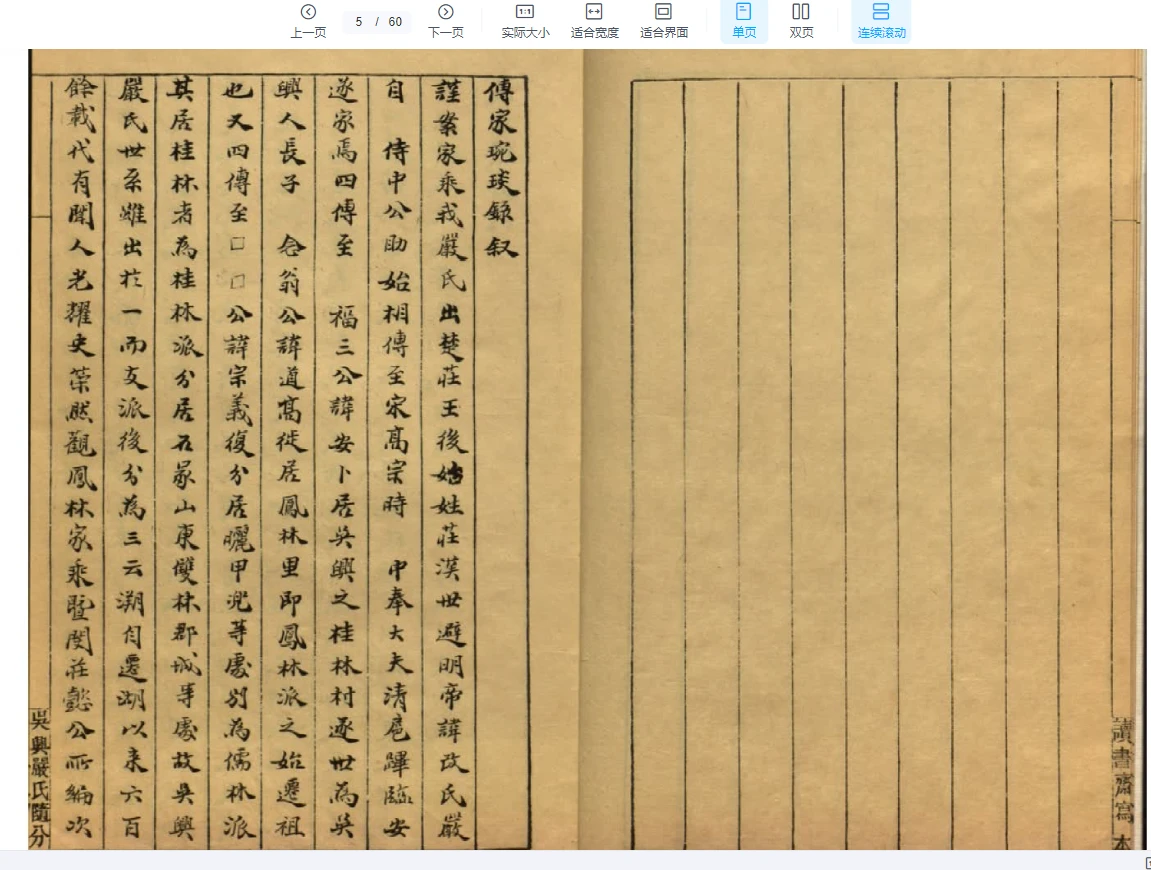 上一页
5 / 60
下一页
1:1
实际大小
适合宽度
适合界面
单页
双页
连续滚动
傳家琬琰錄叙
謹案家乘我嚴氏出楚莊王後始姓莊漢世避明帝諱改氏嚴
自 侍中公助始相傳至宋高宗時 中奉大夫清扈蹕臨安
遂家焉四傳至 福三公諱安卜居吳興之桂林村遂世為吳
興人長子 念翁公諱道高徙居鳳林里即鳳林派之始遷祖
也又四傳至□□公諱宗義復分居曬甲兜等處別為儒林派
其居桂林者為桂林派分居石冢山東雙林郡城等處故吳興
嚴氏世系雖出於一而支派後分為三云溯自遷湖以来六百
餘載代有聞人光耀史策然觀鳳林家乘暨閔莊懿公所編次
吳興嚴氏隨分
讀書齋寫本